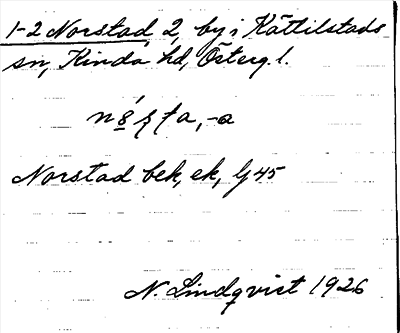 1-2 Norstad 2, by i Kättilstads
sn, Kinda hd, Österg. l.
Norstad bek, ek, Gj 45
N. Lindqvist 1926